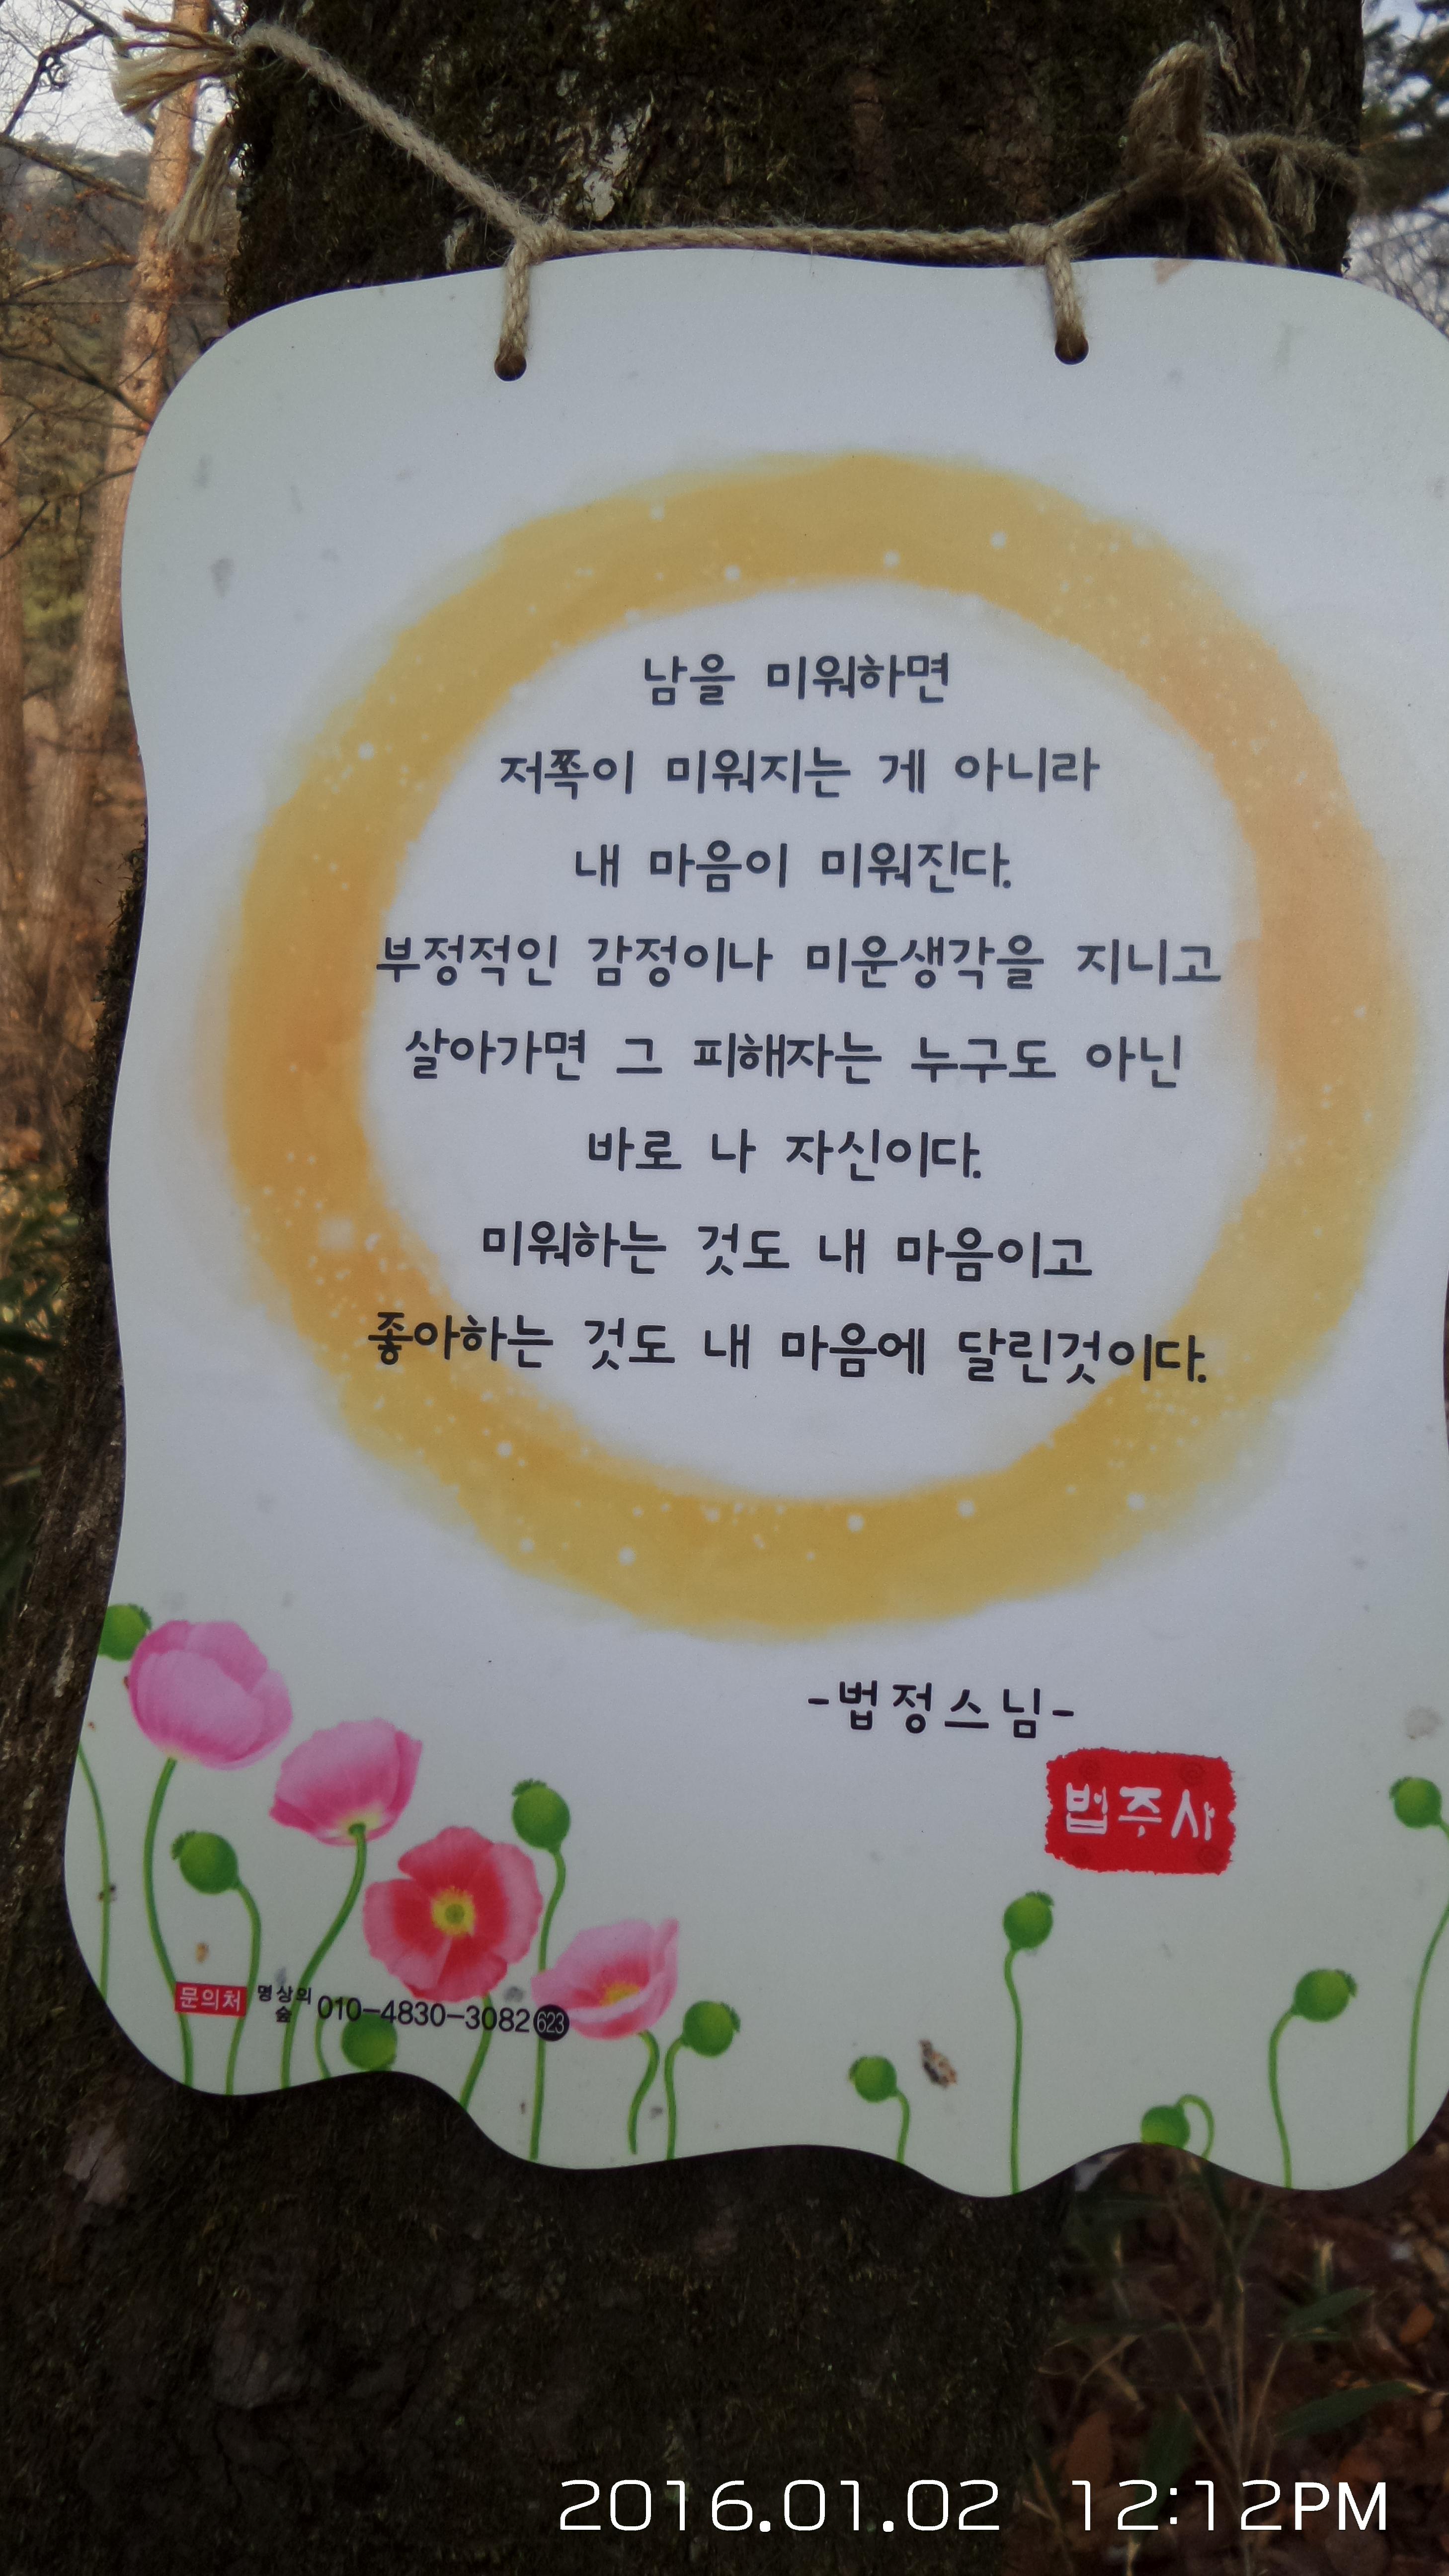 남을 미워하면
저쪽이 미워지는 게 아니라
내 마음이 미워진다.
부정적인 감정이나 미운생각을 지니고
살아가면 그 피해자는 누구도 아닌
바로 나 자신이다.
미워하는 것도 내 마음이고
좋아하는 것도 내 마음에 달린것이다.
-법정스님-
법주사
문의처 명상의숲 010-4830-3082 623
2016.01.02 12:12PM